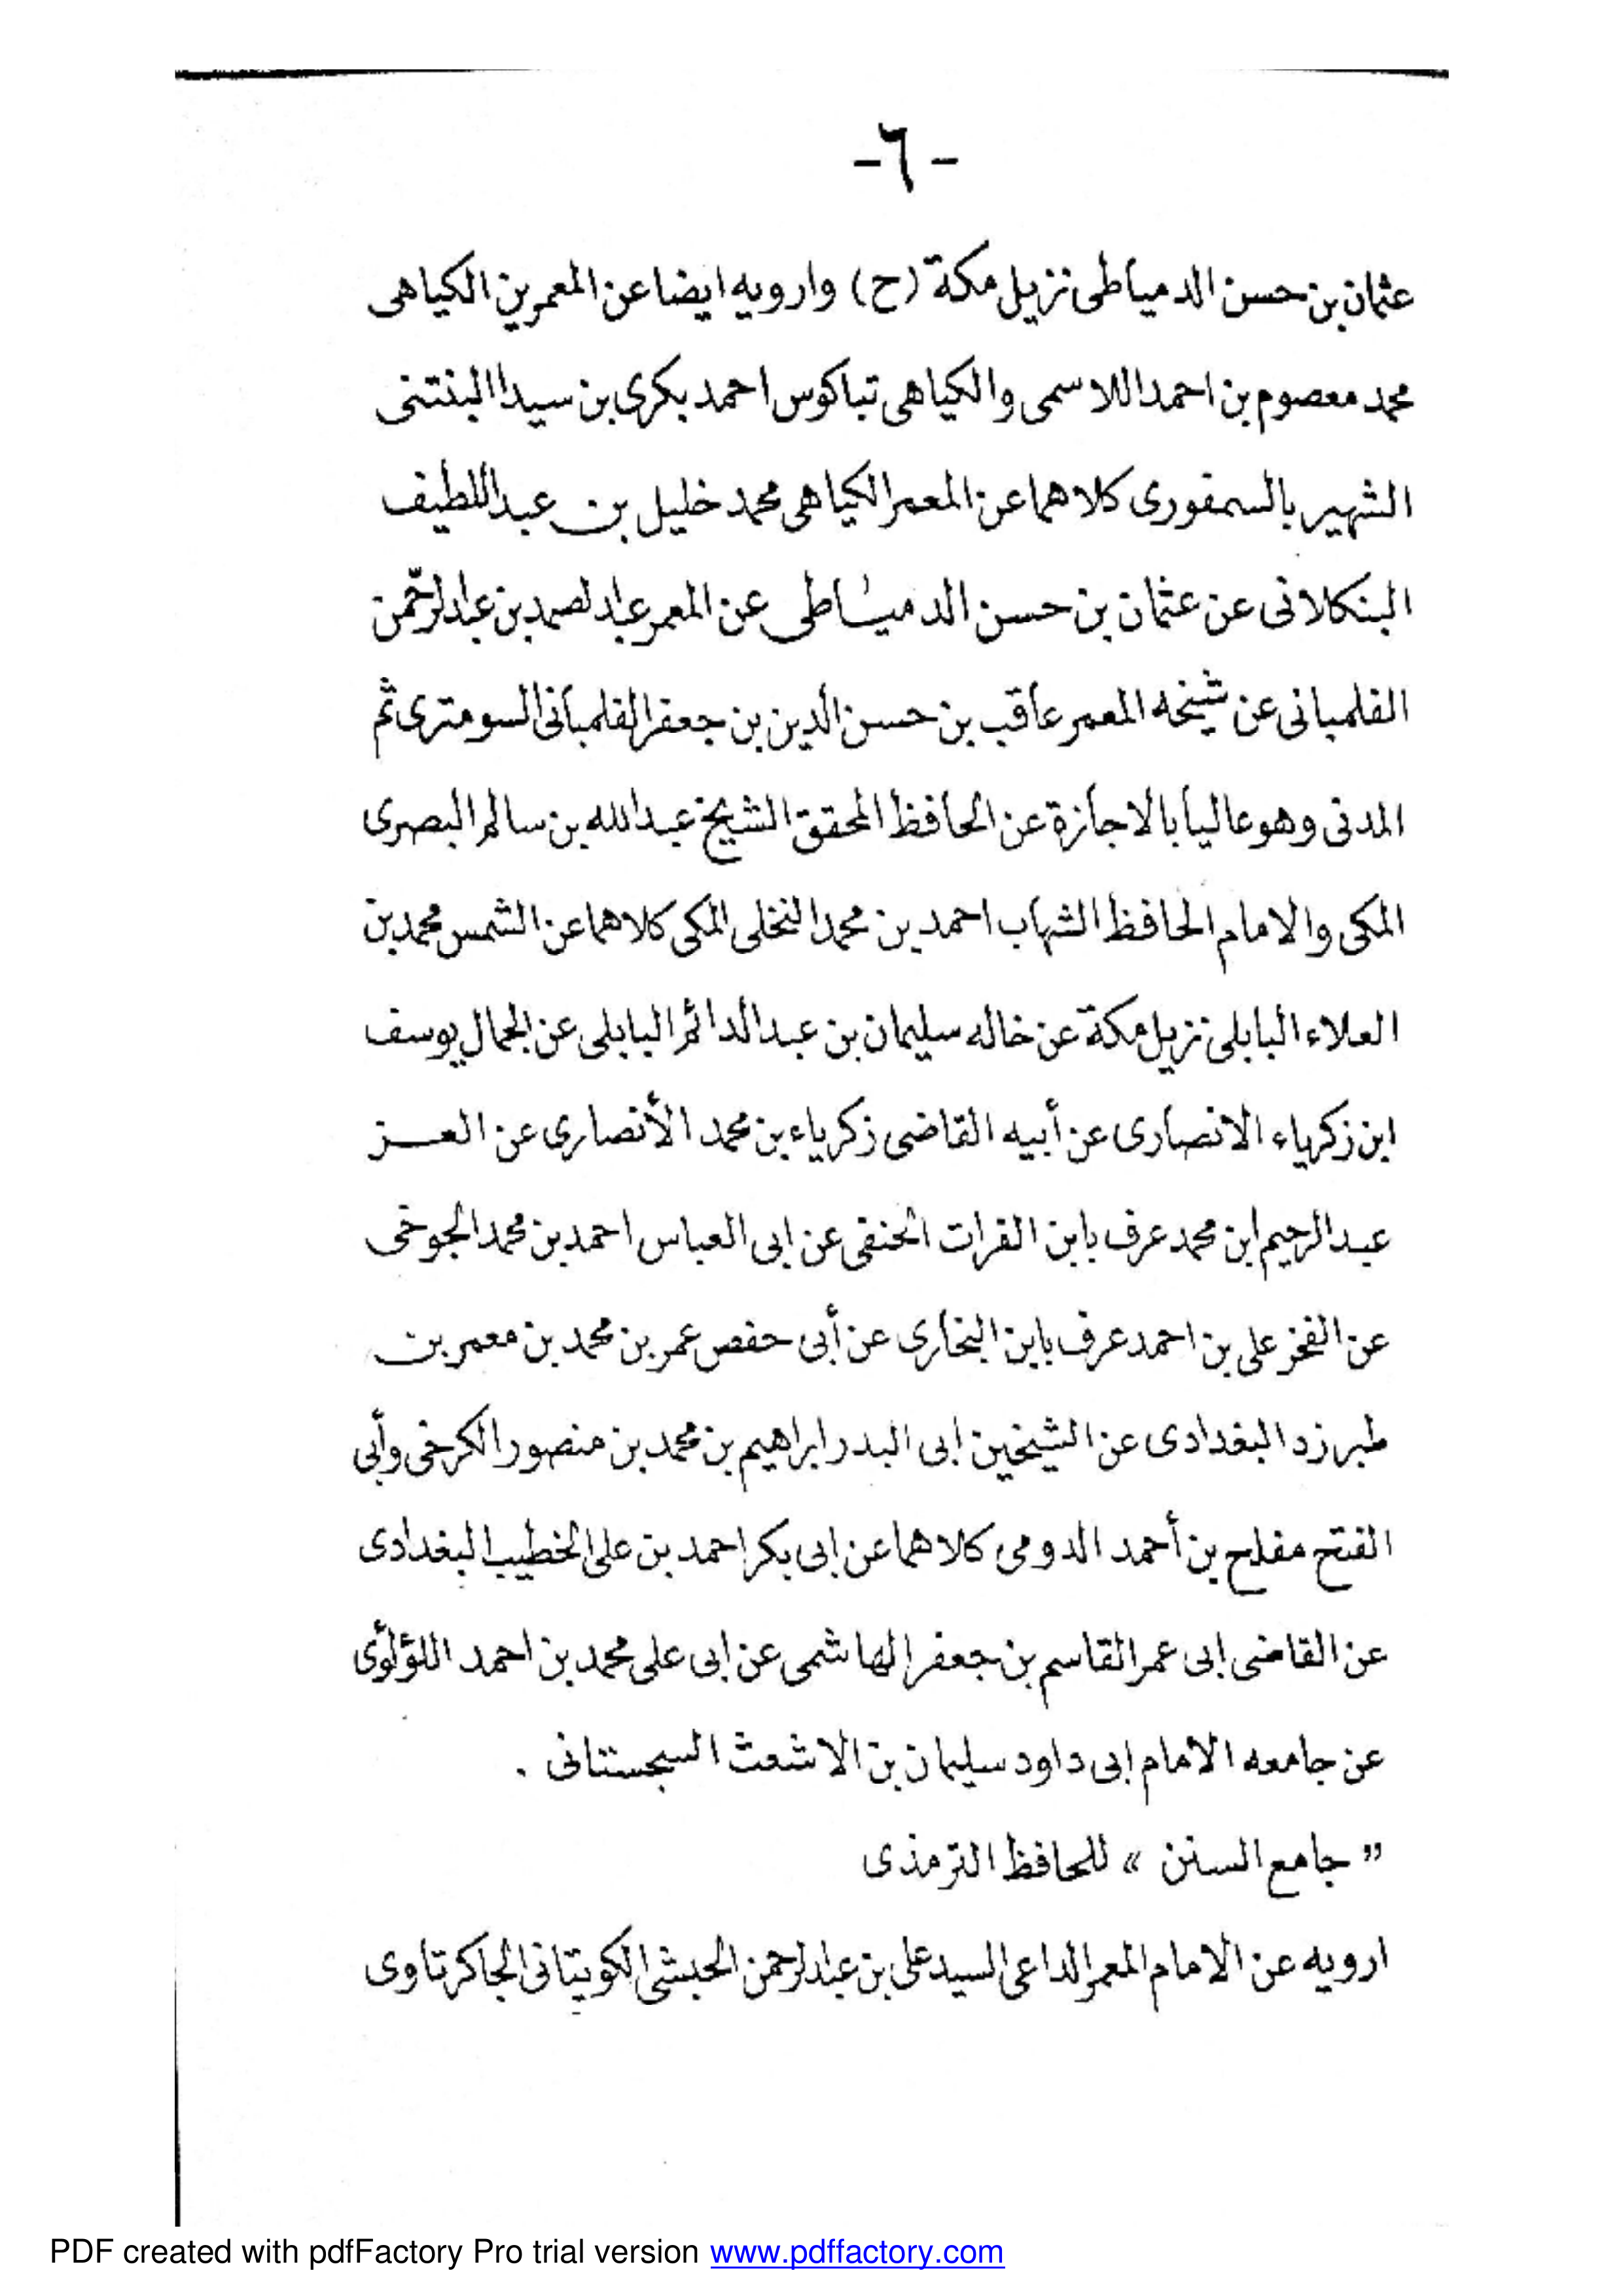 -٦-
عثمان بن حسن الدمياطى نزيل مكة (ح) وارويه ايضا عن المعمرين الكياهى
محمد معصوم بن احمد اللاسمى والكياهى تباكوس احمد بكرى بن سيدا البنتنى
الشهير بالسمفورى كلاهما عن المعمر الكياهى محمد خليل بن عبد اللطيف
البنكلانى عن عثمان بن حسن الدمياطى عن المعمر عبد الصمد بن عبد الرحمن
الفلمبانى عن شيخه المعمر عاقب بن حسن الدين بن جعفر الفلمبانى السومترى ثم
المدنى وهو عاليا بالاجازة عن الحافظ المحقق الشيخ عبد الله بن سالم البصرى
المكى والامام الحافظ الشهاب احمد بن محمد النخلى المكى كلاهما عن الشمس محمد بن
العلاء البابلى نزيل مكة عن خاله سليمان بن عبد الدائم البابلى عن الجمال يوسف
ابن زكرياء الانصارى عن أبيه القاضى زكرياء بن محمد الأنصارى عن العز
عبد الرحيم ابن محمد عرف بابن الفرات الحنفى عن ابى العباس احمد بن محمد الجوخى
عن الفخر على بن احمد عرف بابن البخارى عن أبى حفص عمر بن محمد بن معمر بن
طبر زد البغدادى عن الشيخين ابى البدر ابراهيم بن محمد بن منصور الكرخى وأبى
الفتح مفلح بن أحمد الدومى كلاهما عن ابى بكر احمد بن على الخطيب البغدادى
عن القاضى ابى عمر القاسم بن جعفر الهاشمى عن ابى على محمد بن احمد اللؤلؤى
عن جامعه الامام ابى داود سليمان بن الاشعث السجستانى .
” جامع السنن “ للحافظ الترمذى
ارويه عن الامام المعمر الداعى السيد على بن عبد الرحمن الحبشى الكويتانى الجاكرتاوى
PDF created with pdfFactory Pro trial version www.pdffactory.com